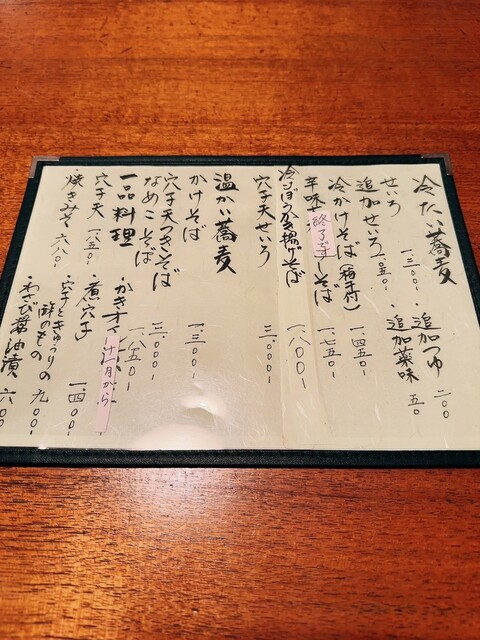 冷たい蕎麦
せいろ 一、三〇〇-
・追加つゆ 二〇〇
追加せいろ 一、〇五〇-
・追加薬味 五〇
冷かけそば(稲荷付) 一、四五〇-
辛味 終了です そば 一、七五〇-
冷ごぼうかき揚げそば 一、八〇〇-
穴子天せいろ 三、〇〇〇-
温かい蕎麦
かけそば 一、三〇〇-
穴子天つきそば 三、〇〇〇-
なめこそば 一、八五〇-
一品料理
かきオイ 十一月から
穴子天 一、八五〇-
・煮穴子 一、四〇〇-
穴子ときゅうりの酢のもの 九〇〇-
焼きみそ 六八〇-
・わさび醤油漬 六〇〇-